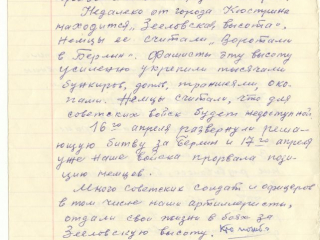 Недалеко от города Кюстрина
находится „Зееловская высота".
Немцы ее считали „Воротами
в Берлин". Фашисты эту высоту
усиленно укрепили тысячами
бункеров, дотов, траншеями, око-
пами. Немцы считали, что для
советских войск будет недоступной
16го апреля развернули решаю-
ющую битву за Берлин и 17го апреля
уже наши войска прорвала пози-
цию немцев.
Много советских солдат и офицеров
в том числе наши артиллеристы,
отдали свои жизни в боях за
Зееловскую высоту.